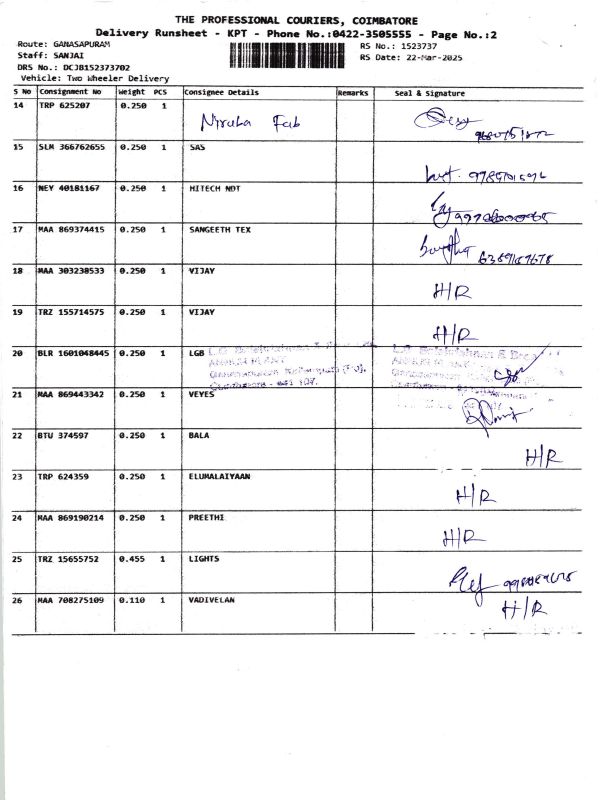 THE PROFESSIONAL COURIERS, COIMBATORE
Delivery Runsheet - KPT - Phone No.:0422-3505555 - Page No.:2
Route: GANASAPURAM
RS No.: 1523737
Staff: SANJAI
RS Date: 22-Mar-2025
DRS No.: DCJB152373702
Vehicle: Two Wheeler Delivery
S No Consignment No Weight PCS Consignee Details Remarks Seal & Signature
14 TRP 625207 0.250 1
15 SLM 366762655 0.250 1 SAS
16 NEY 40181167 0.250 1 HITECH NDT
17 MAA 869374415 0.250 1 SANGEETH TEX
18 MAA 303238533 0.250 1 VIJAY H/R
19 TRZ 155714575 0.250 1 VIJAY H/R
20 BLR 1601048445 0.250 1 LGB
21 MAA 869443342 0.250 1 VEYES
22 BTU 374597 0.250 1 BALA H/R
23 TRP 624359 0.250 1 ELUMALAIYAAN H/R
24 MAA 869190214 0.250 1 PREETHI H/R
25 TRZ 15655752 0.455 1 LIGHTS
26 MAA 708275109 0.110 1 VADIVELAN H/R